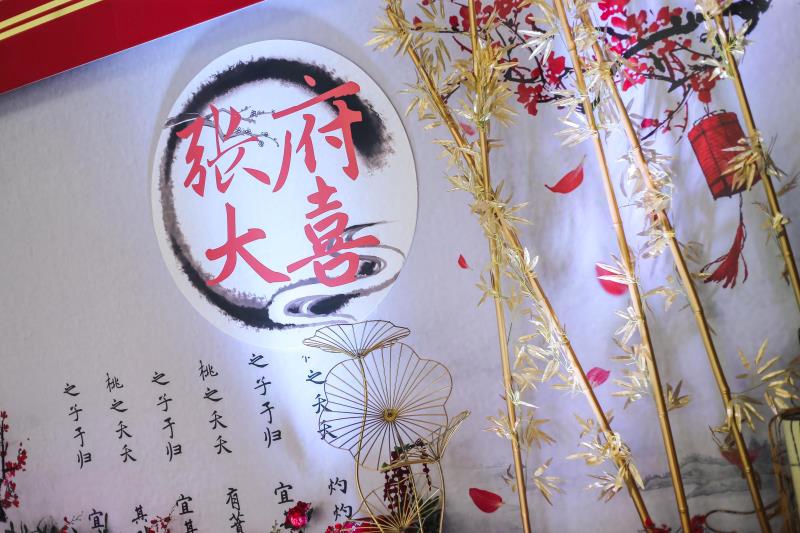 张府
大喜
之夭夭 灼灼
之子于归 宜
桃之夭夭 有
之子于归 宜其
桃之夭夭 其
之子于归 宜